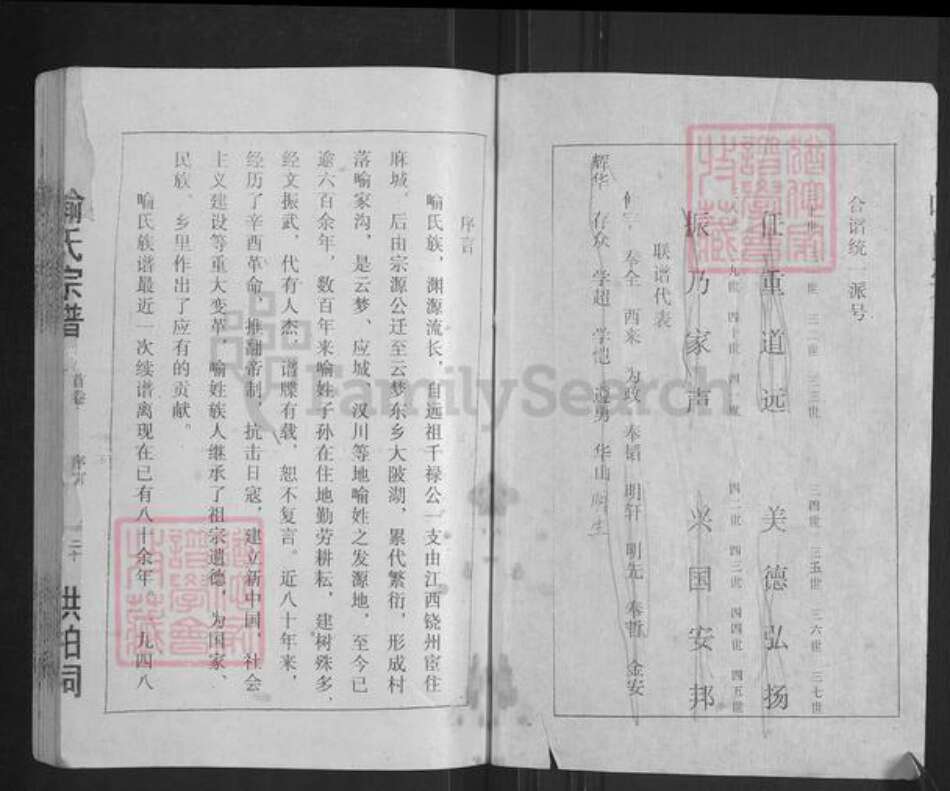 合谱统一派号
任重道远 美德弘扬
三二世 三三世 三四世 三五世 三六世 三七世
振乃家声 兴国安邦
四十世 四二世 四三世 四四世 四五世
联谱代表
奉全 西来 为政 奉韬 明轩 明先 奉哲 金安
辉华 存众 学超 遵勇 华山
序言
喻氏族，渊源流长，自远祖千禄公一支由江西饶州宦住
麻城，后由宗源公迁至云梦东乡大陂湖，累代繁衍，形成村
落喻家沟，是云梦、应城、汉川等地喻姓之发源地，至今已
逾六百余年，数百年来喻姓子孙在住地勤劳耕耘，建树殊多，
经文振武，代有人杰，谱牒有载，恕不复言。近八十年来，
经历了辛酉革命，推翻帝制，抗击日寇，建立新中国，社会
主义建设等重大变革，喻姓族人继承了祖宗遗德，为国家、
民族、乡里作出了应有的贡献。
喻氏族谱最近一次续谱离现在已有八十余年。九四八
喻氏宗谱
首卷
序言
二十
洪柏祠
FamilySearch